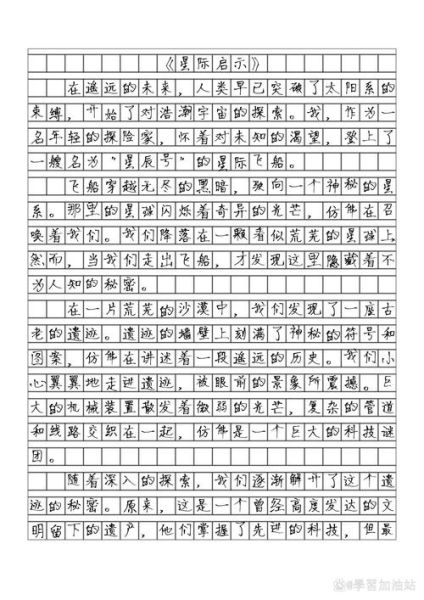 《星际启示》
在遥远的未来，人类早已突破了太阳系的
束缚，开始了对浩瀚宇宙的探索。我，作为一
名年轻的探险家，怀着对未知的渴望，登上了
一艘名为“星辰号”的星际飞船。
飞船穿越无尽的黑暗，驶向一个神秘的星
系。那里的星球闪烁着奇异的光芒，仿佛在召
唤着我们。我们降落在一颗看似荒芜的星球上，
然而，当我们走出飞船，才发现这里隐藏着不
为人知的秘密。
在一片荒芜的沙漠中，我们发现了一座古
老的遗迹。遗迹的墙壁上刻满了神秘的符号和
图案，仿佛在讲述着一段遥远的历史。我们小
心翼翼地走进遗迹，被眼前的景象所震撼。巨
大的机械装置散发着微弱的光芒，复杂的管道
和线路交织在一起，仿佛是一个巨大的科技谜
团。
随着深入的探索，我们逐渐解开了这个遗
迹的秘密。原来，这是一个曾经高度发达的文
明留下的遗产，他们掌握了先进的科技，但最
學習加油站